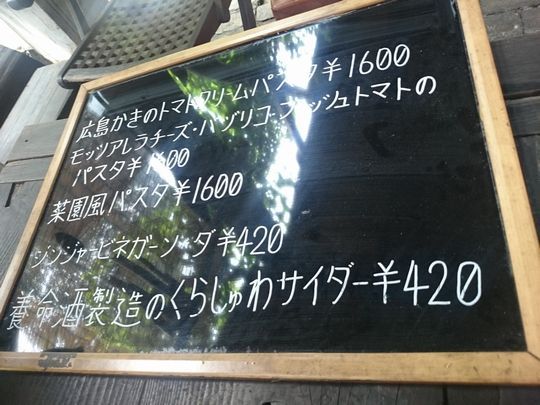 広島かきのトマトクリームパスタ ¥1600
モッツアレラチーズ・バジリコ・フレッシュトマトの
パスタ ¥1600
菜園風パスタ ¥1600
ジンジャービネガーソーダ ¥420
養命酒製造のくらしゅわサイダー ¥420